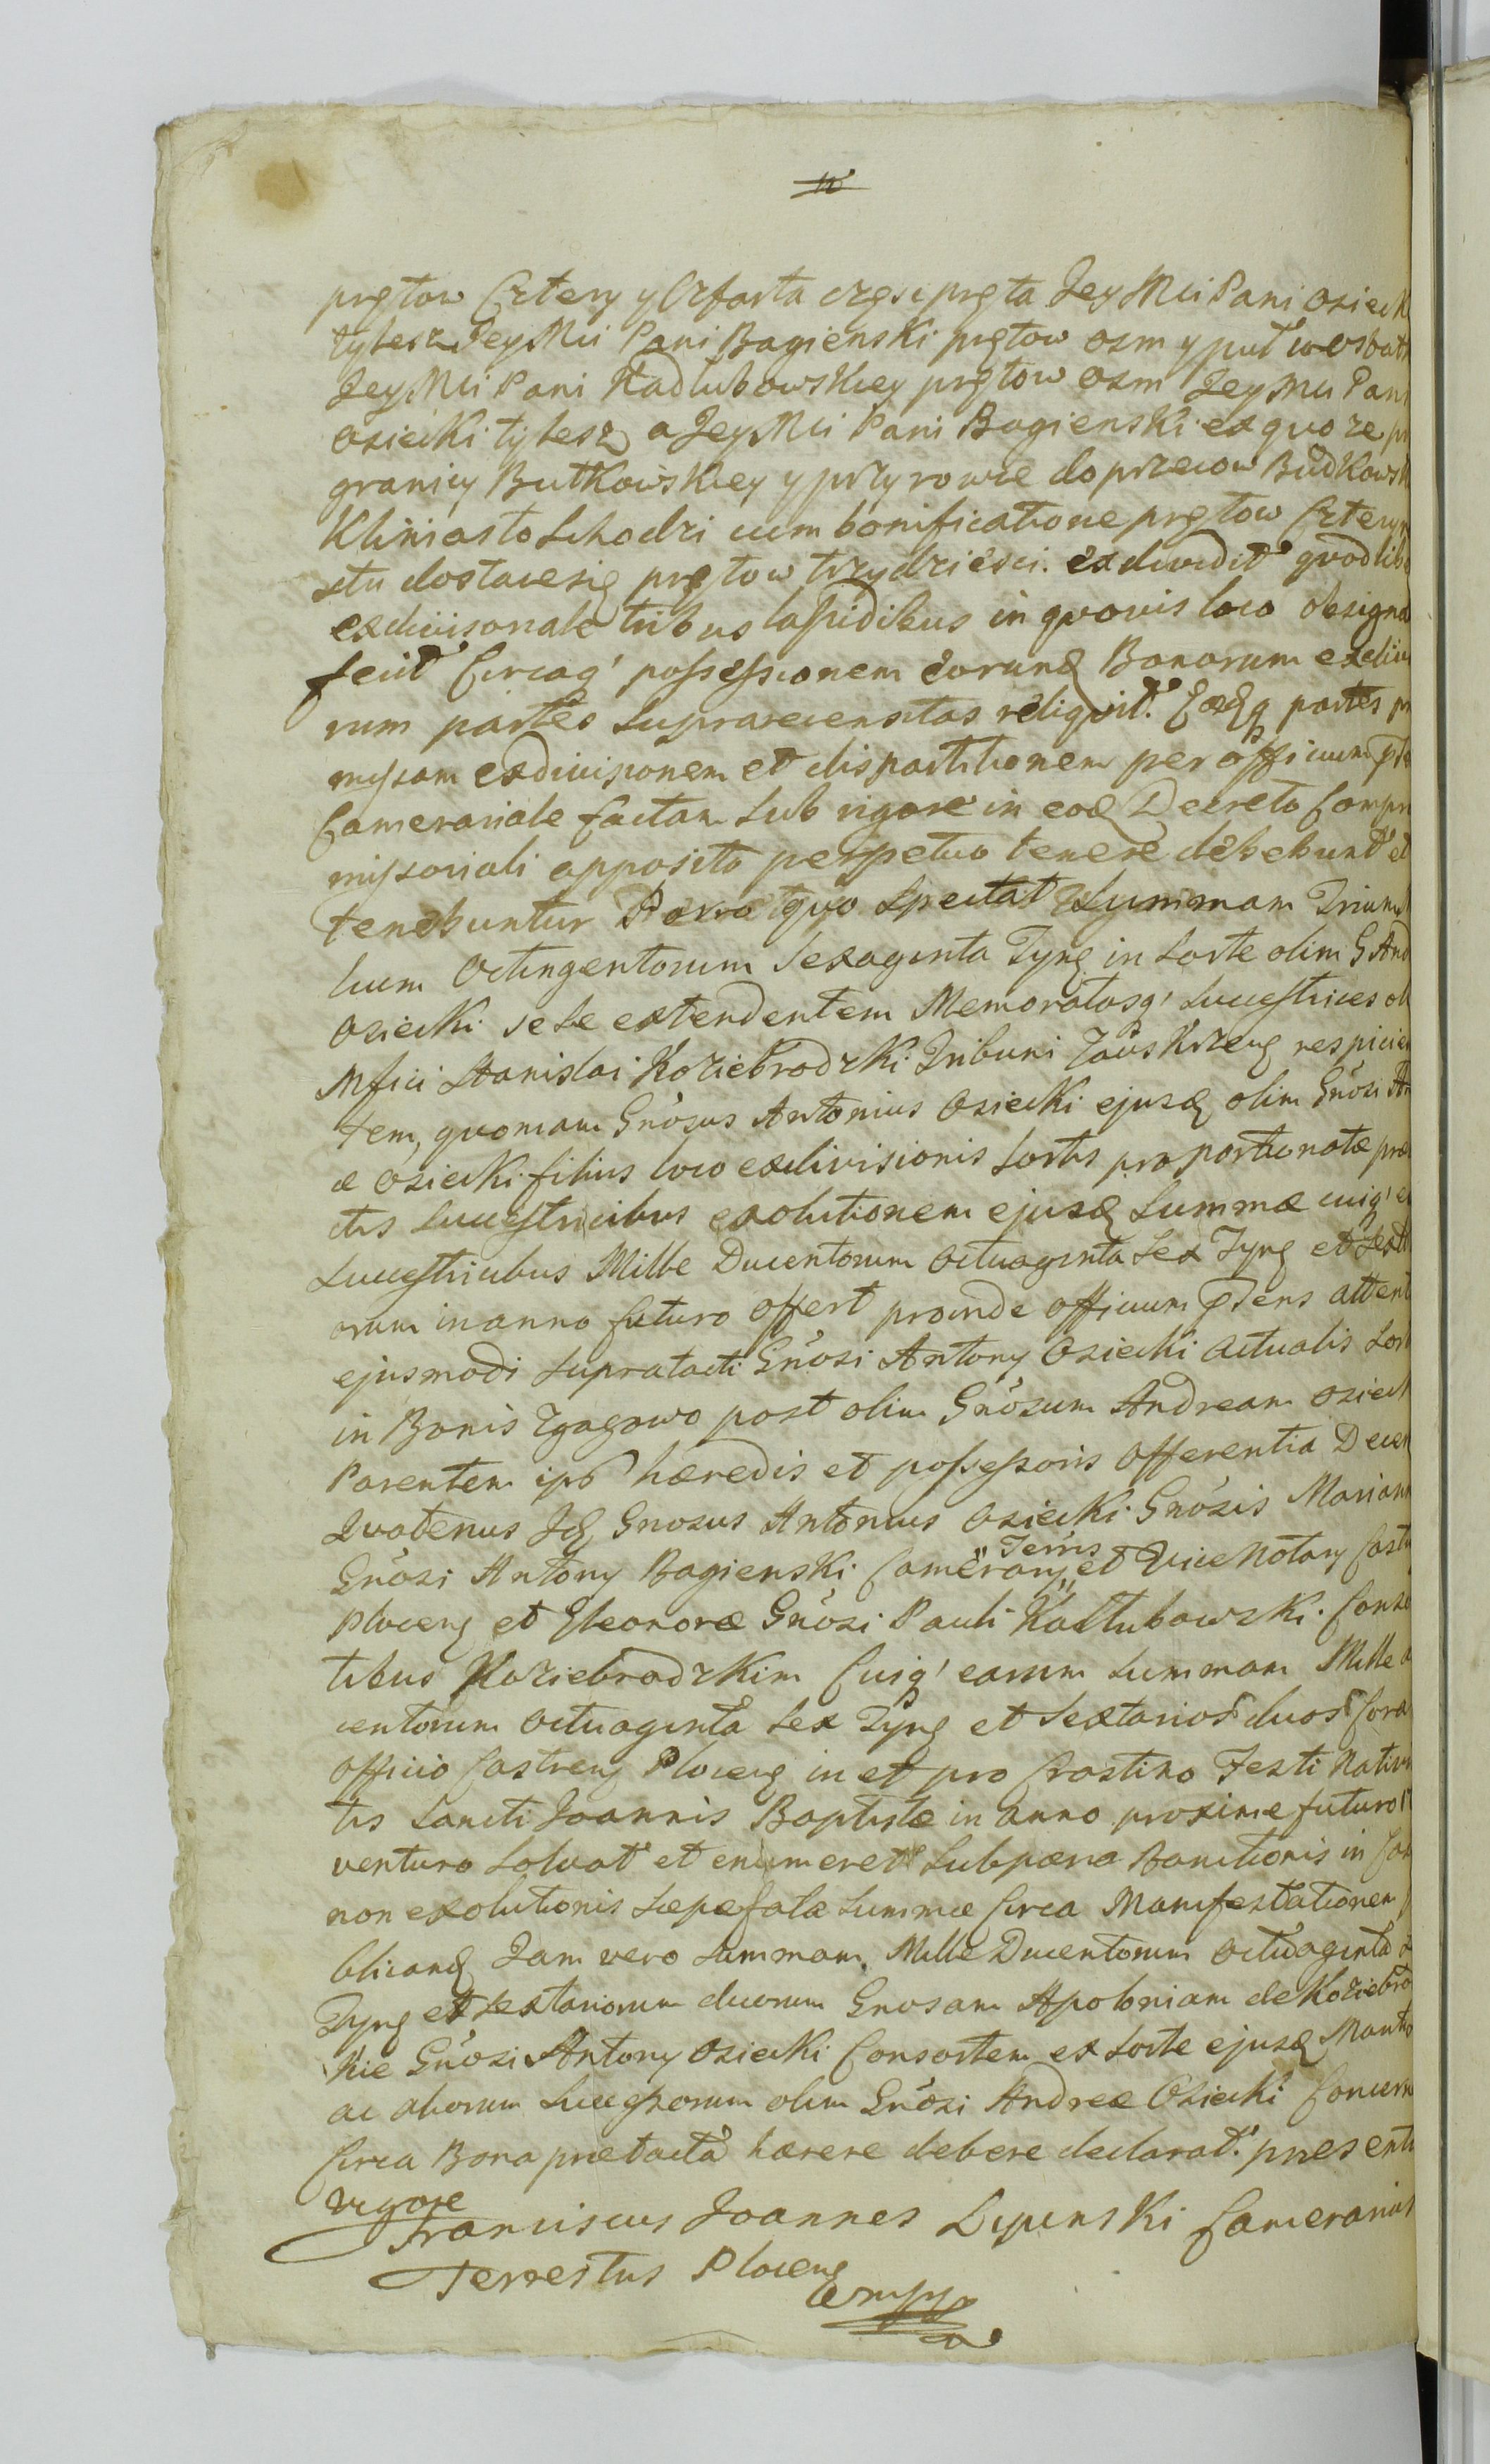 prętow Cztery y Czfarta częsc pręta Jey Mci Pani Osieck
tylesz Jey Mci Pani Bagienski prętow osm y puł w
Jey Mci Pani Kadlubowskiey prętow osm Jey Mci Pani
Osiecki tylesz a Jey Mci Pani Bagienski ex quo ze
granicy Butkowskiey y przy rowie do przecow Budkowsk
Kliniasto schodzi cum bonificatione prętow Cztery
stu dostacesię prętow trzydziesci. exdividit quodlibe
exdivisionale tribus lapidibus in quovis loco designa
fecit Circaq' possessionem eorund Bonorum exdivi
rum partes suprarecensitas reliquit. Eaedq partes
missam exdivisionem et dispartitionem per officium
Camerariale factam sub rigore in eod Decreto Compro
missoriali apposito perpetuo tenere debebunt et
tenebuntur Porro quo spectat Summam Trium
lium Octingentorum Sexaginta Tynf in sorte olim G And
Osiecki sese extendentem Memoratasq' Successtrices ol
Mfici Stanislai Koziebrodzki Tribuni Zawskrzen respicien
tem, quoniam Gnosus Antonius Osiecki ejusd olim Gnosi An
æ Osiecki filius loco exdivisionis sortis proportionatæ præ
ctis Successtricibus exolutionem ejusd Summæ cuiq'
Successtricibus Mille Ducentorum Octuaginta Sex Tynf et Sext
orum in anno futuro offert proinde officium pns attent
ejusmodi supratacti Gnosi Antony Osiecki Actualis Sort
in Bonis Zgagowo post olim Gnosum Andream Osieck
Parentem ips hæredis et possessoris offerentia Decer
Quatenus Id Gnosus Antonius Osiecki Gnosis Mariann
Terris
Gnosi Antony Bagienski Camerary et Vice Notary Cast
Plocen et Eleonoræ Gnosi Pauli Kadlubowski Conso
tibus Koziebrodzkim Cuiq' earum summam Mille
centorum Octuaginta Sex Tynf et Sextarios duos Cora
officio Castren Plocen in et pro Crastino Festi Nativi
tis Sancti Joannis Baptistæ in anno proxime futuro
venturo solvat et enumeret Sub pæna Banitionis in Cas
non exolutionis sæpefatæ summæ Circa Manifestationem
blicand Jam vero summam Mille Ducentorum Octuaginta
Tynf et Sextariorum duorum Gnosam Apoloniam de Koziebro
kie Gnosi Antony Osiecki Consortem ex sorte ejusd Mariti
ac aliorum Successorum olim Gnosi Andreæ Osiecki Concern
Circa Bona prætacta hærere debere declarat. presenti
vigore
Franciscus Joannes Lipinski Camerarius
Terrestris Plocen
mpp